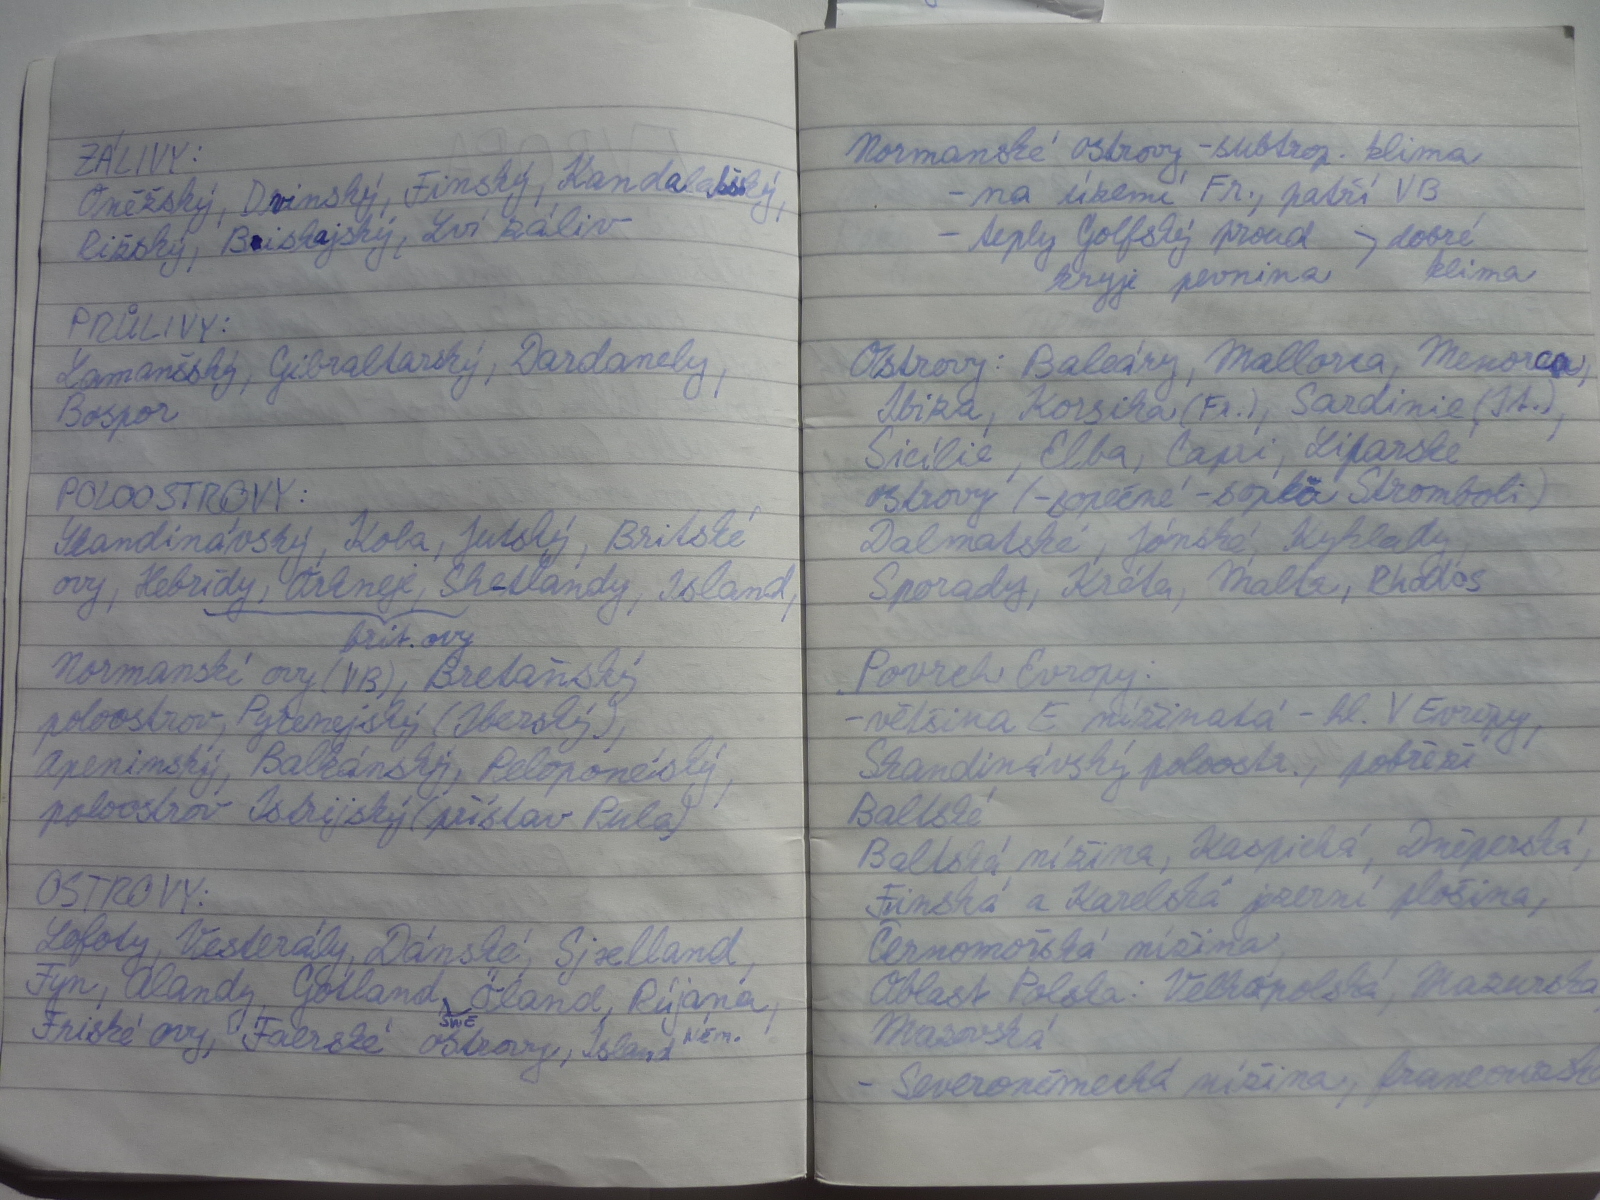 ZÁLIVY:
Oněžský, Dvinský, Finský, Kandalašský,
Rižský, Biskajský, Lví záliv
PRŮLIVY:
Lamanšský, Gibraltarský, Dardanely,
Bospor
POLOOSTROVY:
Skandinávský, Kola, Jutský, Britské
ovy, Hebridy, Orkneje, Shetlandy, Island,
brit. ovy
Normanské ovy (VB), Bretaňský
poloostrov, Pyrenejský (Iberský),
Apeninský, Balkánský, Peloponéský,
poloostrov Istrijský (přístav Pula)
OSTROVY:
Lofoty, Vesterály, Dánské, Sjælland,
Fyn, Alandy, Gotland, Öland, Rujana,
ŠWE
Friské ovy, Faerské ostrovy, Island Něm.
Normanské ostrovy - subtrop. klima
- na území Fr., patří VB
- teplý Golfský proud → dobré
kryje pevnina klima
Ostrovy: Baleáry, Mallorca, Menorca,
Ibiza, Korsika (Fr.), Sardinie (It.),
Sicílie, Elba, Capri, Liparské
ostrovy (- sopečné - sopka Stromboli)
Dalmatské, Jónské, Kyklady,
Sporady, Kréta, Malta, Rhodos
Povrch Evropy:
- většina E nížinatá - hl. V Evropy,
Skandinávský poloostr., pobřeží
Baltské
Baltská nížina, Kaspická, Dněperská,
Finská a Karelská jezerní plošina,
Černomořská nížina,
Oblast Polska: Velkopolská, Mazurská
Mazovská
- Severoněmecká nížina, francouzská